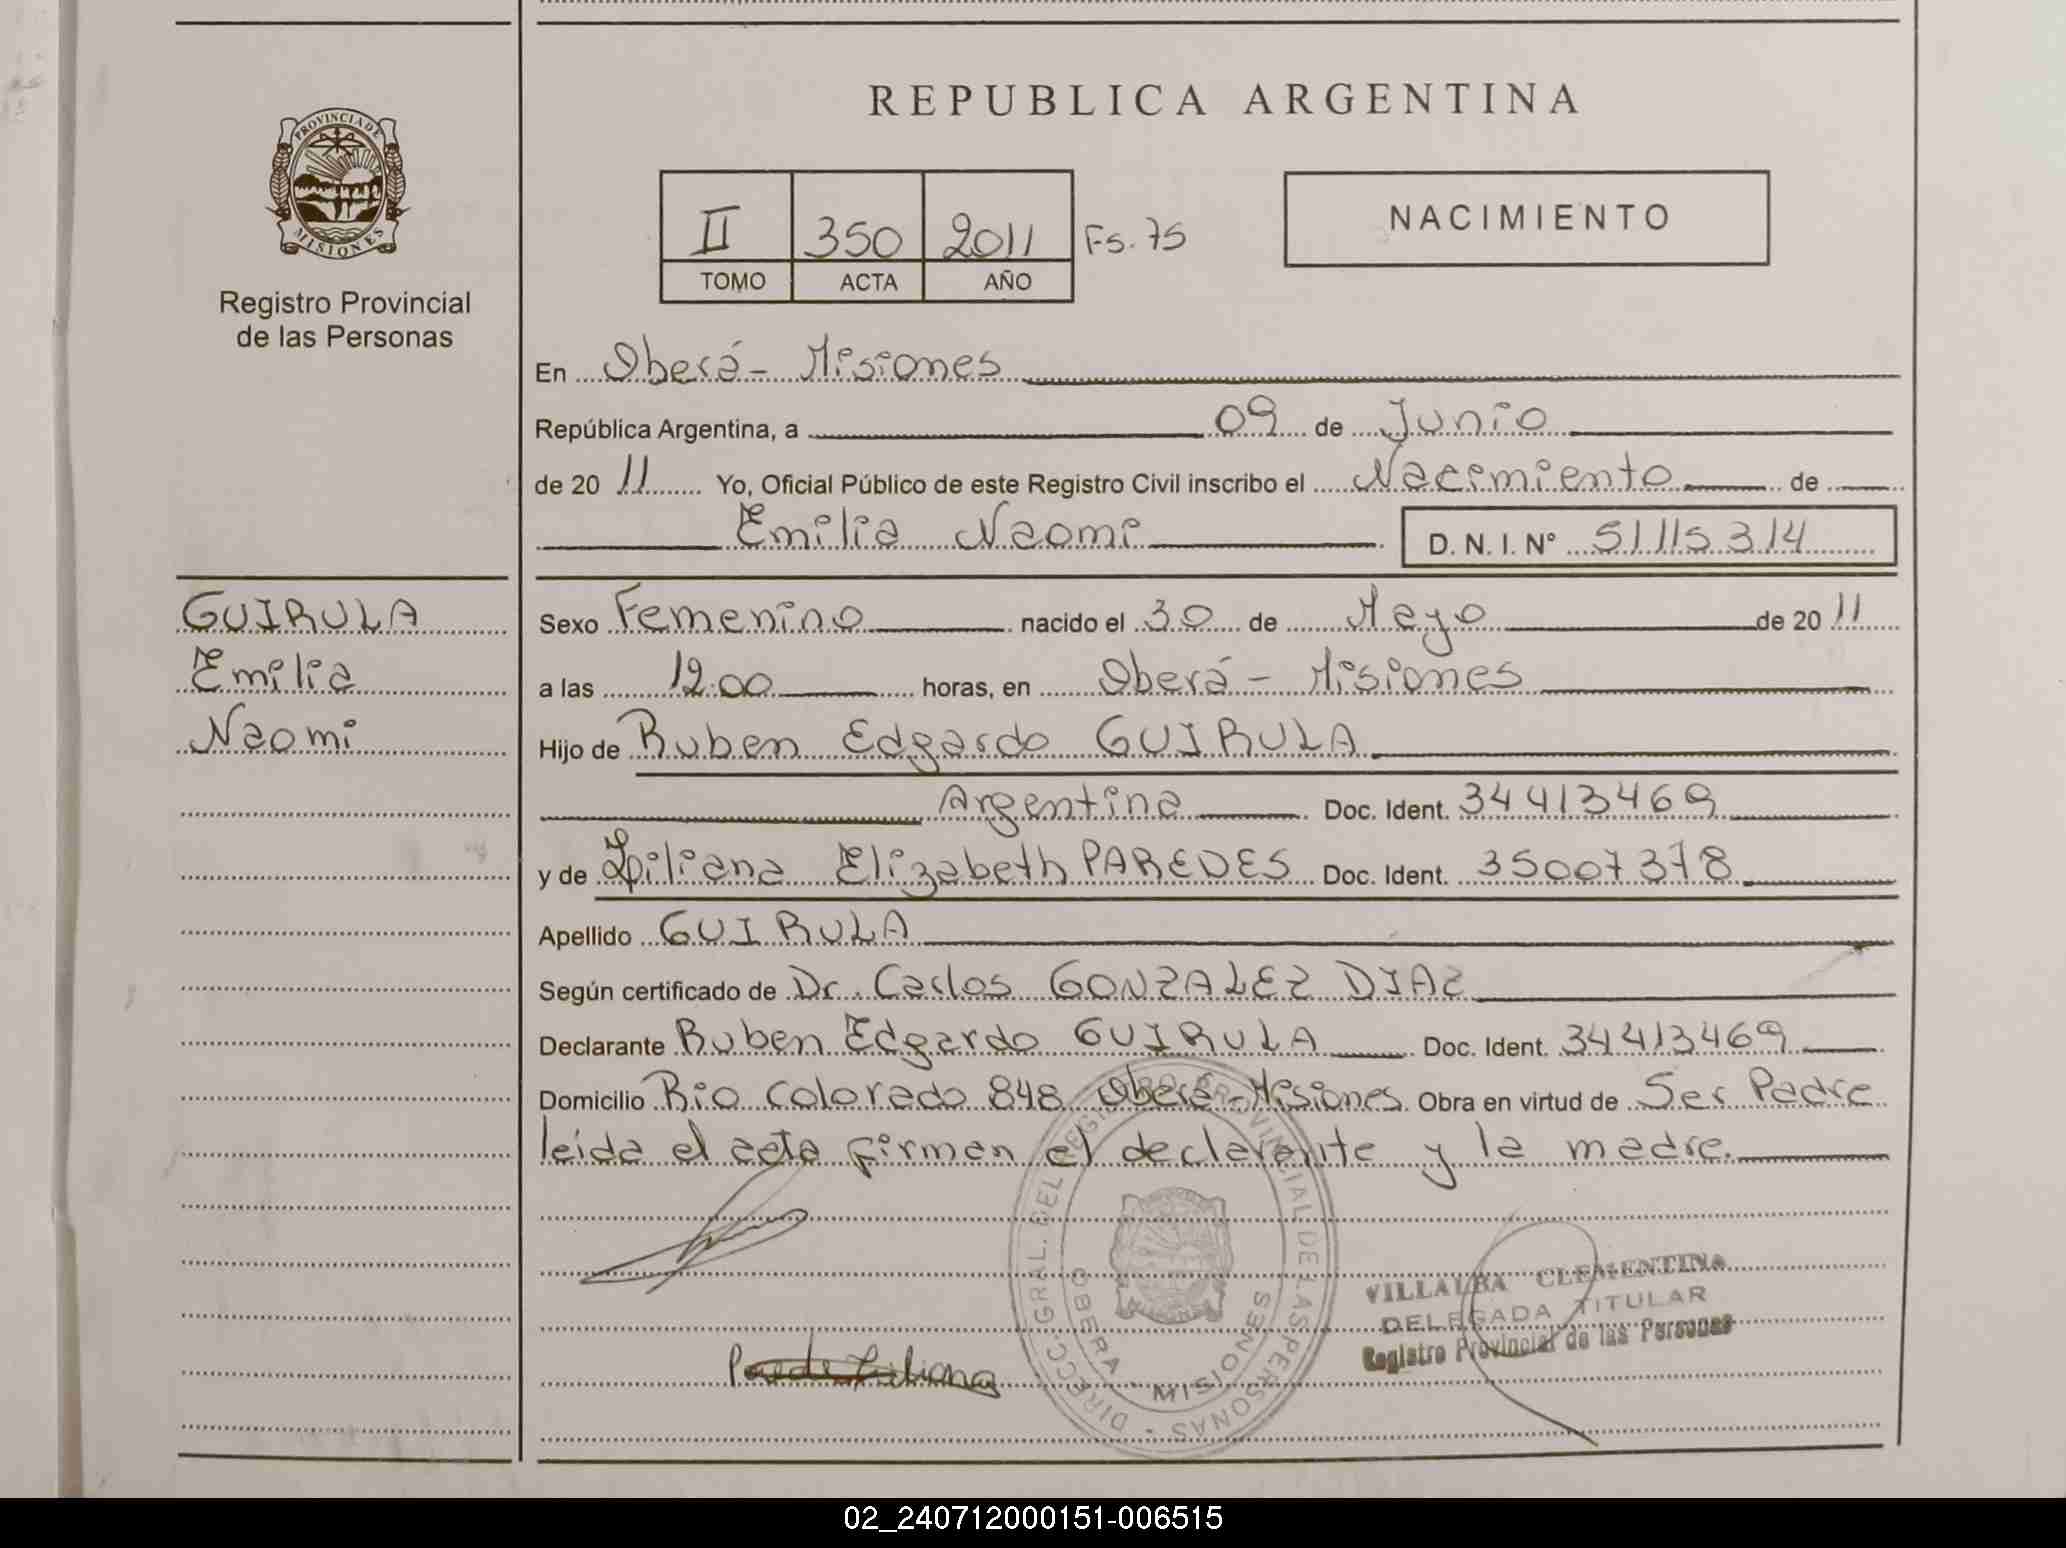 REPUBLICA ARGENTINA
PROVINCIA DE
MISIONES
Registro Provincial
de las Personas
II 350 2011 Fs. 75
TOMO ACTA AÑO
NACIMIENTO
En Oberá - Misiones
República Argentina, a 09 de Junio
de 20 11 Yo, Oficial Público de este Registro Civil inscribo el Nacimiento de
Emilia Naomi D. N. I. Nº 51115314
GUIRULA
Emilia
Naomi
Sexo Femenino nacido el 30 de Mayo de 20 11
a las 12:00 horas, en Oberá - Misiones
Hijo de Ruben Edgardo GUIRULA
Argentina Doc. Ident. 34413469
y de Liliana Elizabeth PAREDES Doc. Ident. 35007378
Apellido GUIRULA
Según certificado de Dr. Carlos GONZALEZ DIAZ
Declarante Ruben Edgardo GUIRULA Doc. Ident. 34413469
Domicilio Rio Colorado 848 Oberá - Misiones Obra en virtud de Ser Padre
leida el acta firman el declarante y la madre.
DIRECC. GRAL. DEL REGISTRO PROVINCIAL DE LAS PERSONAS
OBERA - MISIONES
VILLALBA CLEMENTINA
DELEGADA TITULAR
Registro Provincial de las Personas
Liliana
02_240712000151-006515